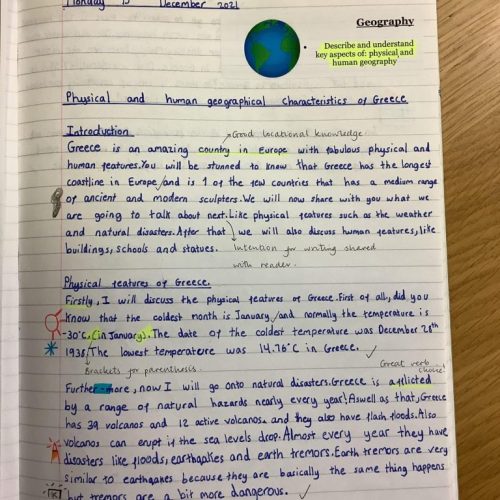 Monday 13 December 2021
Geography
Describe and understand
key aspects of: physical and
human geography
Physical and human geographical characteristics of Greece
Introduction
Good locational knowledge.
Greece is an amazing country in Europe with fabulous physical and
human features. You will be stunned to know that Greece has the longest
coastline in Europe and is 1 of the few countries that has a medium range
of ancient and modern sculpters. We will now share with you what we
are going to talk about next. Like physical features such as the weather
and natural disasters. After that we will also discuss human features, like
buildings, schools and statues.
Intention for writing shared
with reader.
Physical features of Greece.
Firstly, I will discuss the physical features of Greece. First of all, did you
know that the coldest month is January, and normally the temperature is
-30°C. (in January). The date of the coldest temperature was December 28th
1938. The lowest temperature was 14.76°C in Greece.
Brackets for parenthesis.
Great verb
choice!
Further-more, now I will go onto natural disasters. Greece is afflicted
by a range of natural hazards nearly every year! Aswell as that, Greece
has 39 volcanos and 12 active volcanos. and they also have flash floods. Also
volcanos can erupt if the sea levels drop. Almost every year they have
disasters like floods, earthqakes and earth tremors. Earth tremors are very
similar to earthqakes because they are basically the same thing happens
but tremors are a bit more dangerous.